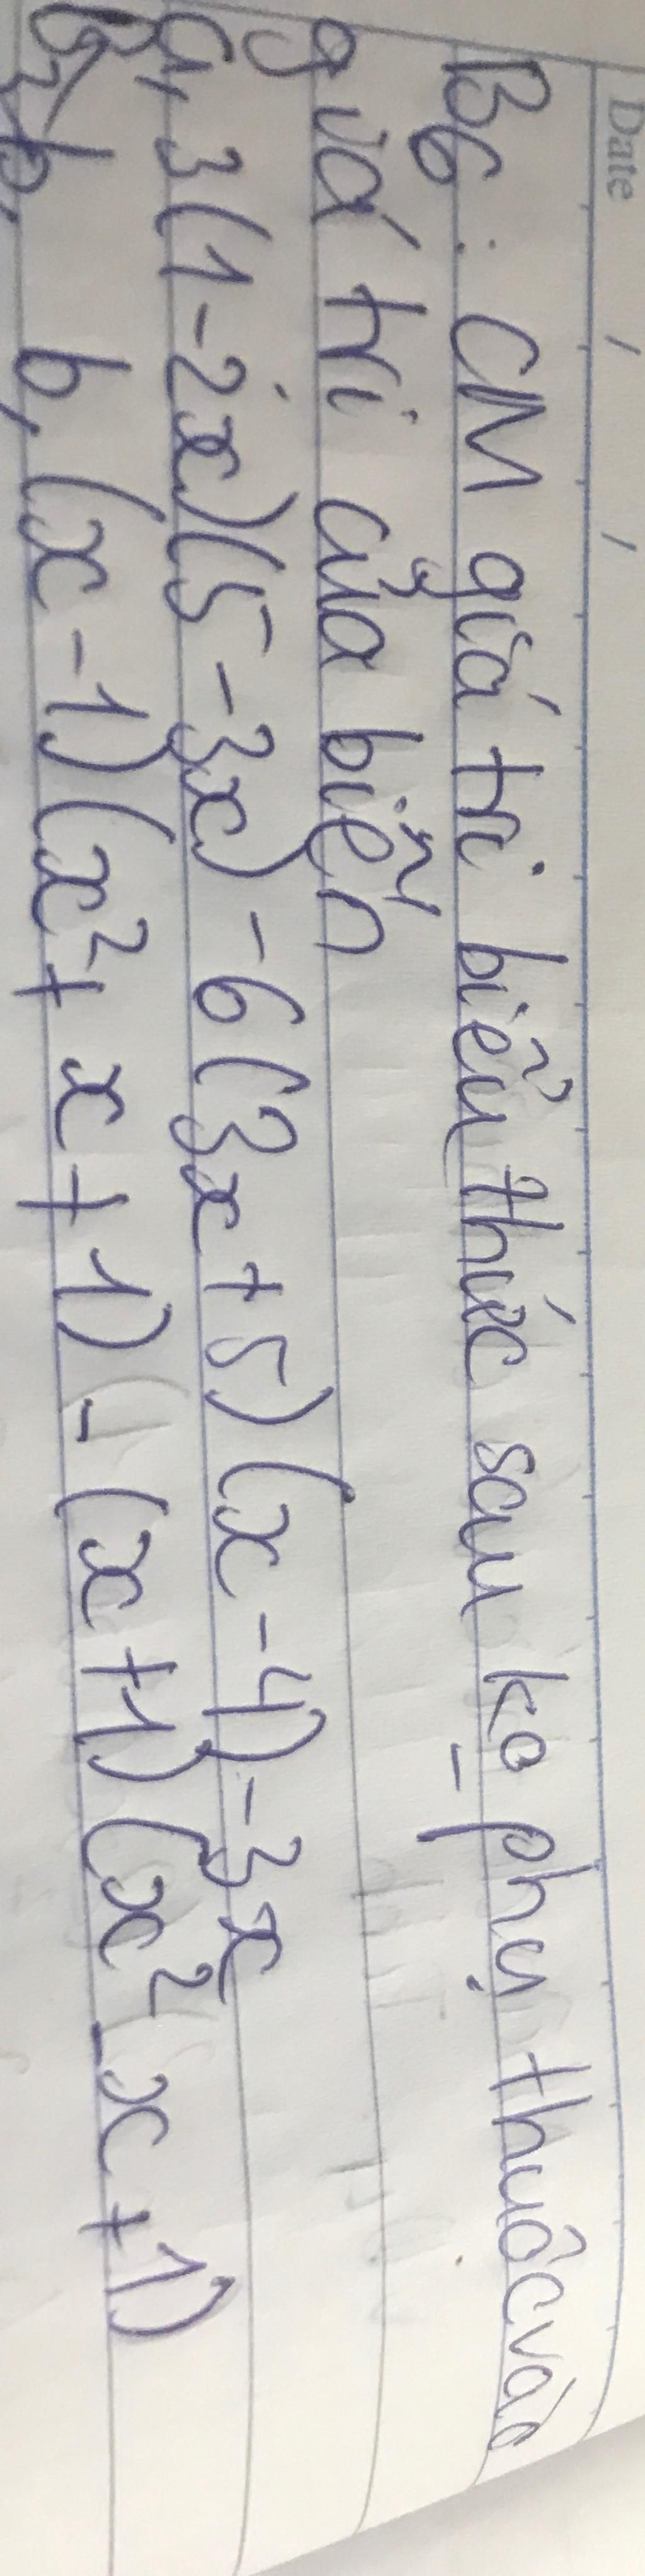 Date / /
B6: CM giá trị biểu thức sau ko phụ thuộc vào
giá trị của biến
a, 3(1-2x)(5-3x)-6(3x+5)(x-4)-3x
b, (x-1)(x²+x+1)-(x+1)(x²-x+1)